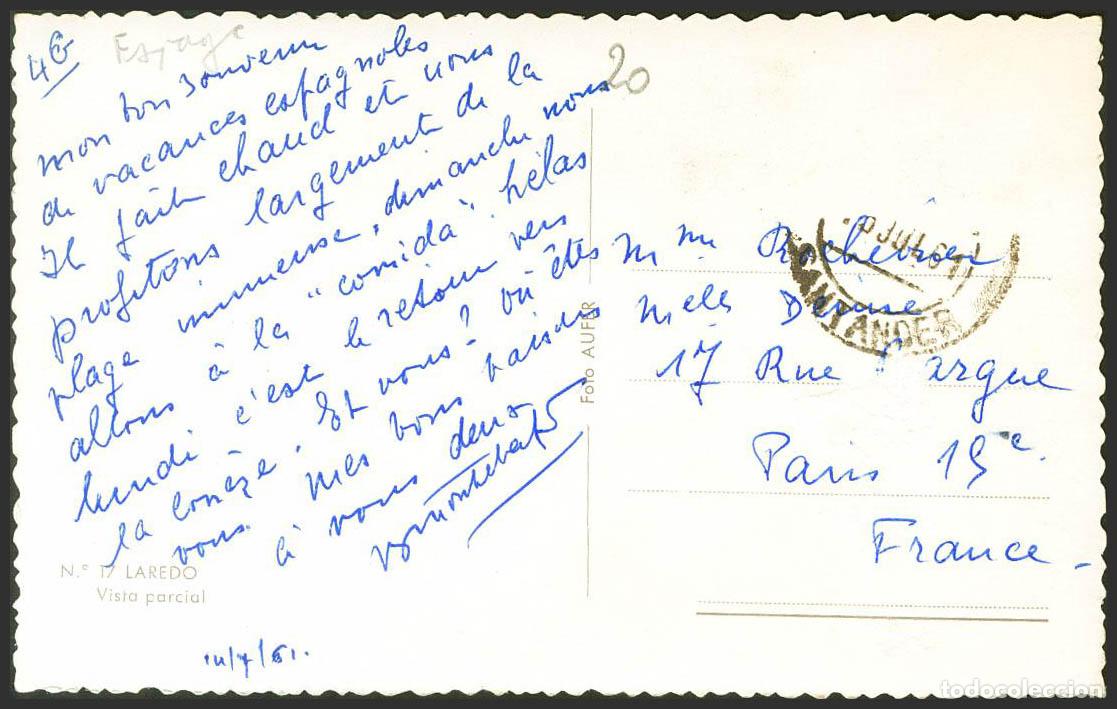 4G
Espagne
20
mon bon souvenir
de vacances espagnoles
Il fait chaud et nous
profitons largement de la
plage immense, dimanche nous
allons à la "comida" hélas
lundi c'est le retour vers
la corrèze. Et vous? où êtes
vous. mes bons baisers
à vous deux
Foto AUFER
N.º 17 LAREDO
Vista parcial
14/7/61.
SANTANDER
JUL 61
Mme
Melle Denise
17 Rue
Paris 15e.
France
todocoleccion